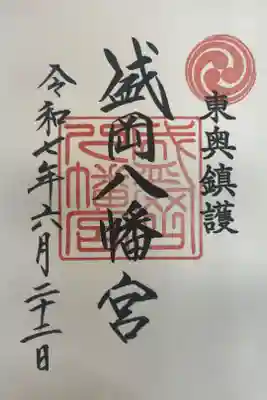 東奥鎮護
盛岡八幡宮
令和七年六月二十二日